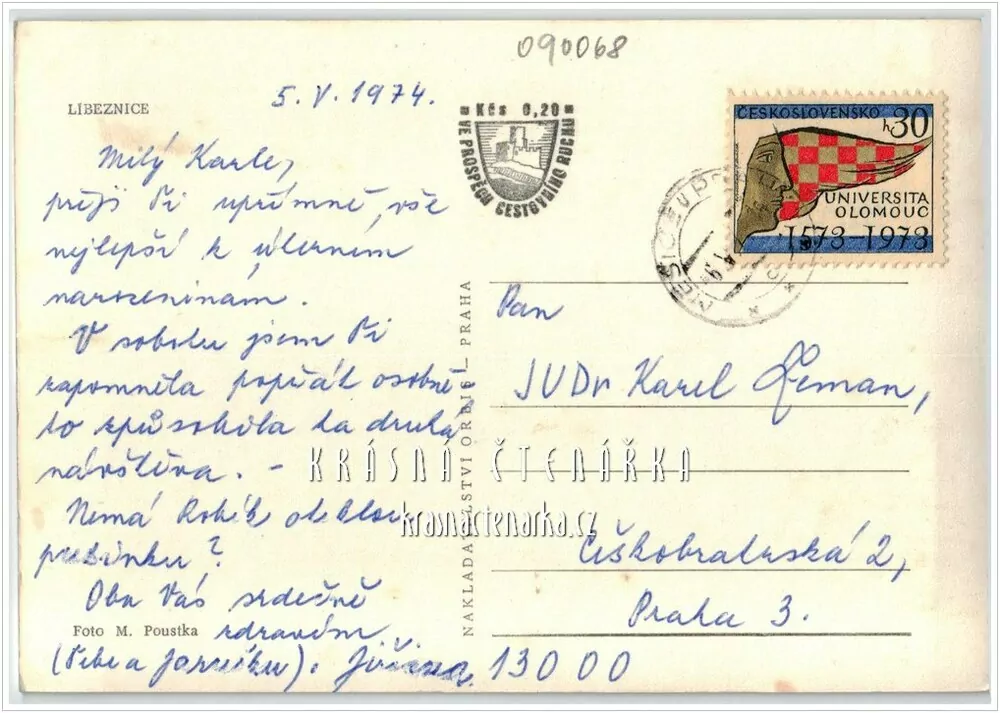 090068
LÍBEZNICE
5. V. 1974.
Milý Karle,
přeji Ti upřímně, vše
nejlepší k úterním
narozeninám.
V sobotu jsem Ti
zapomněla popřát osobně
to způsobila ta druhá
návštěva. -
Nemá Robík
Oba Vás srdečně
zdravím
(Tebe a Jarušku). Jiřina.
Foto M. Poustka
NAKLADATELSTVÍ ORBIS — PRAHA
Kčs 0,20
VE PROSPĚCH CESTOVNÍHO RUCHU
ČESKOSLOVENSKO
h 30
UNIVERSITA
OLOMOUC
1573-1973
Pan
JUDr Karel Zeman,
Českobratrská 2,
Praha 3.
130 00
KRÁSNÁ ČTENÁŘKA
krasnactenarka.cz